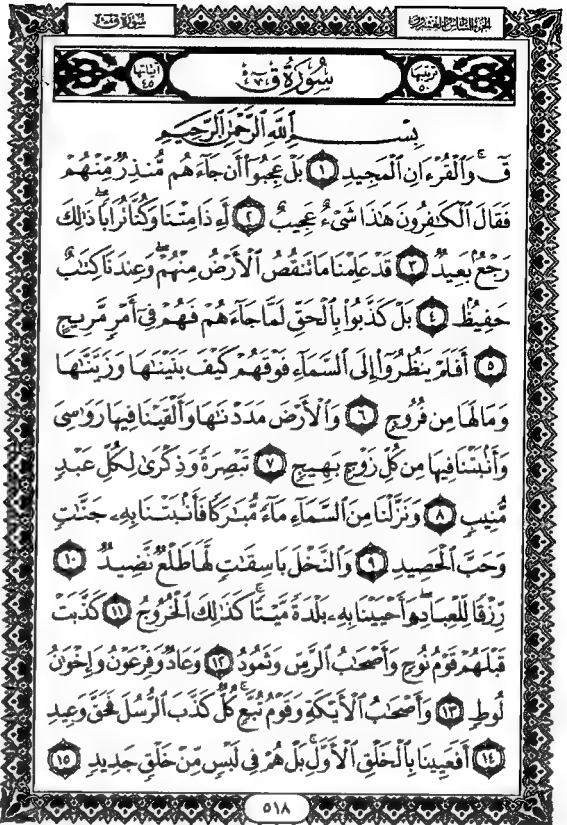 الجزء السادس والعشرون
سورة ق ٥٠
ترتيبها ٥٠
سُورَةُ ق
آياتها ٤٥
بِسْمِ ٱللَّهِ ٱلرَّحْمَٰنِ ٱلرَّحِيمِ
قٓۚ وَٱلْقُرْءَانِ ٱلْمَجِيدِ ١ بَلْ عَجِبُوٓا۟ أَن جَآءَهُم مُّنذِرٌ مِّنْهُمْ
فَقَالَ ٱلْكَٰفِرُونَ هَٰذَا شَىْءٌ عَجِيبٌ ٢ أَءِذَا مِتْنَا وَكُنَّا تُرَابًاۖ ذَٰلِكَ
رَجْعٌۢ بَعِيدٌ ٣ قَدْ عَلِمْنَا مَا تَنقُصُ ٱلْأَرْضُ مِنْهُمْۖ وَعِندَنَا كِتَٰبٌ
حَفِيظٌۢ ٤ بَلْ كَذَّبُوا۟ بِٱلْحَقِّ لَمَّا جَآءَهُمْ فَهُمْ فِىٓ أَمْرٍ مَّرِيجٍ
٥ أَفَلَمْ يَنظُرُوٓا۟ إِلَى ٱلسَّمَآءِ فَوْقَهُمْ كَيْفَ بَنَيْنَٰهَا وَزَيَّنَّٰهَا
وَمَا لَهَا مِن فُرُوجٍ ٦ وَٱلْأَرْضَ مَدَدْنَٰهَا وَأَلْقَيْنَا فِيهَا رَوَٰسِىَ
وَأَنۢبَتْنَا فِيهَا مِن كُلِّ زَوْجٍۭ بَهِيجٍ ٧ تَبْصِرَةً وَذِكْرَىٰ لِكُلِّ عَبْدٍ
مُّنِيبٍ ٨ وَنَزَّلْنَا مِنَ ٱلسَّمَآءِ مَآءً مُّبَٰرَكًا فَأَنۢبَتْنَا بِهِۦ جَنَّٰتٍ
وَحَبَّ ٱلْحَصِيدِ ٩ وَٱلنَّخْلَ بَاسِقَٰتٍ لَّهَا طَلْعٌ نَّضِيدٌ ١٠
رِّزْقًا لِّلْعِبَادِۖ وَأَحْيَيْنَا بِهِۦ بَلْدَةً مَّيْتًاۚ كَذَٰلِكَ ٱلْخُرُوجُ ١١ كَذَّبَتْ
قَبْلَهُمْ قَوْمُ نُوحٍ وَأَصْحَٰبُ ٱلرَّسِّ وَثَمُودُ ١٢ وَعَادٌ وَفِرْعَوْنُ وَإِخْوَٰنُ
لُوطٍ ١٣ وَأَصْحَٰبُ ٱلْأَيْكَةِ وَقَوْمُ تُبَّعٍۚ كُلٌّ كَذَّبَ ٱلرُّسُلَ فَحَقَّ وَعِيدِ
١٤ أَفَعَيِينَا بِٱلْخَلْقِ ٱلْأَوَّلِۚ بَلْ هُمْ فِى لَبْسٍ مِّنْ خَلْقٍ جَدِيدٍ ١٥
٥١٨